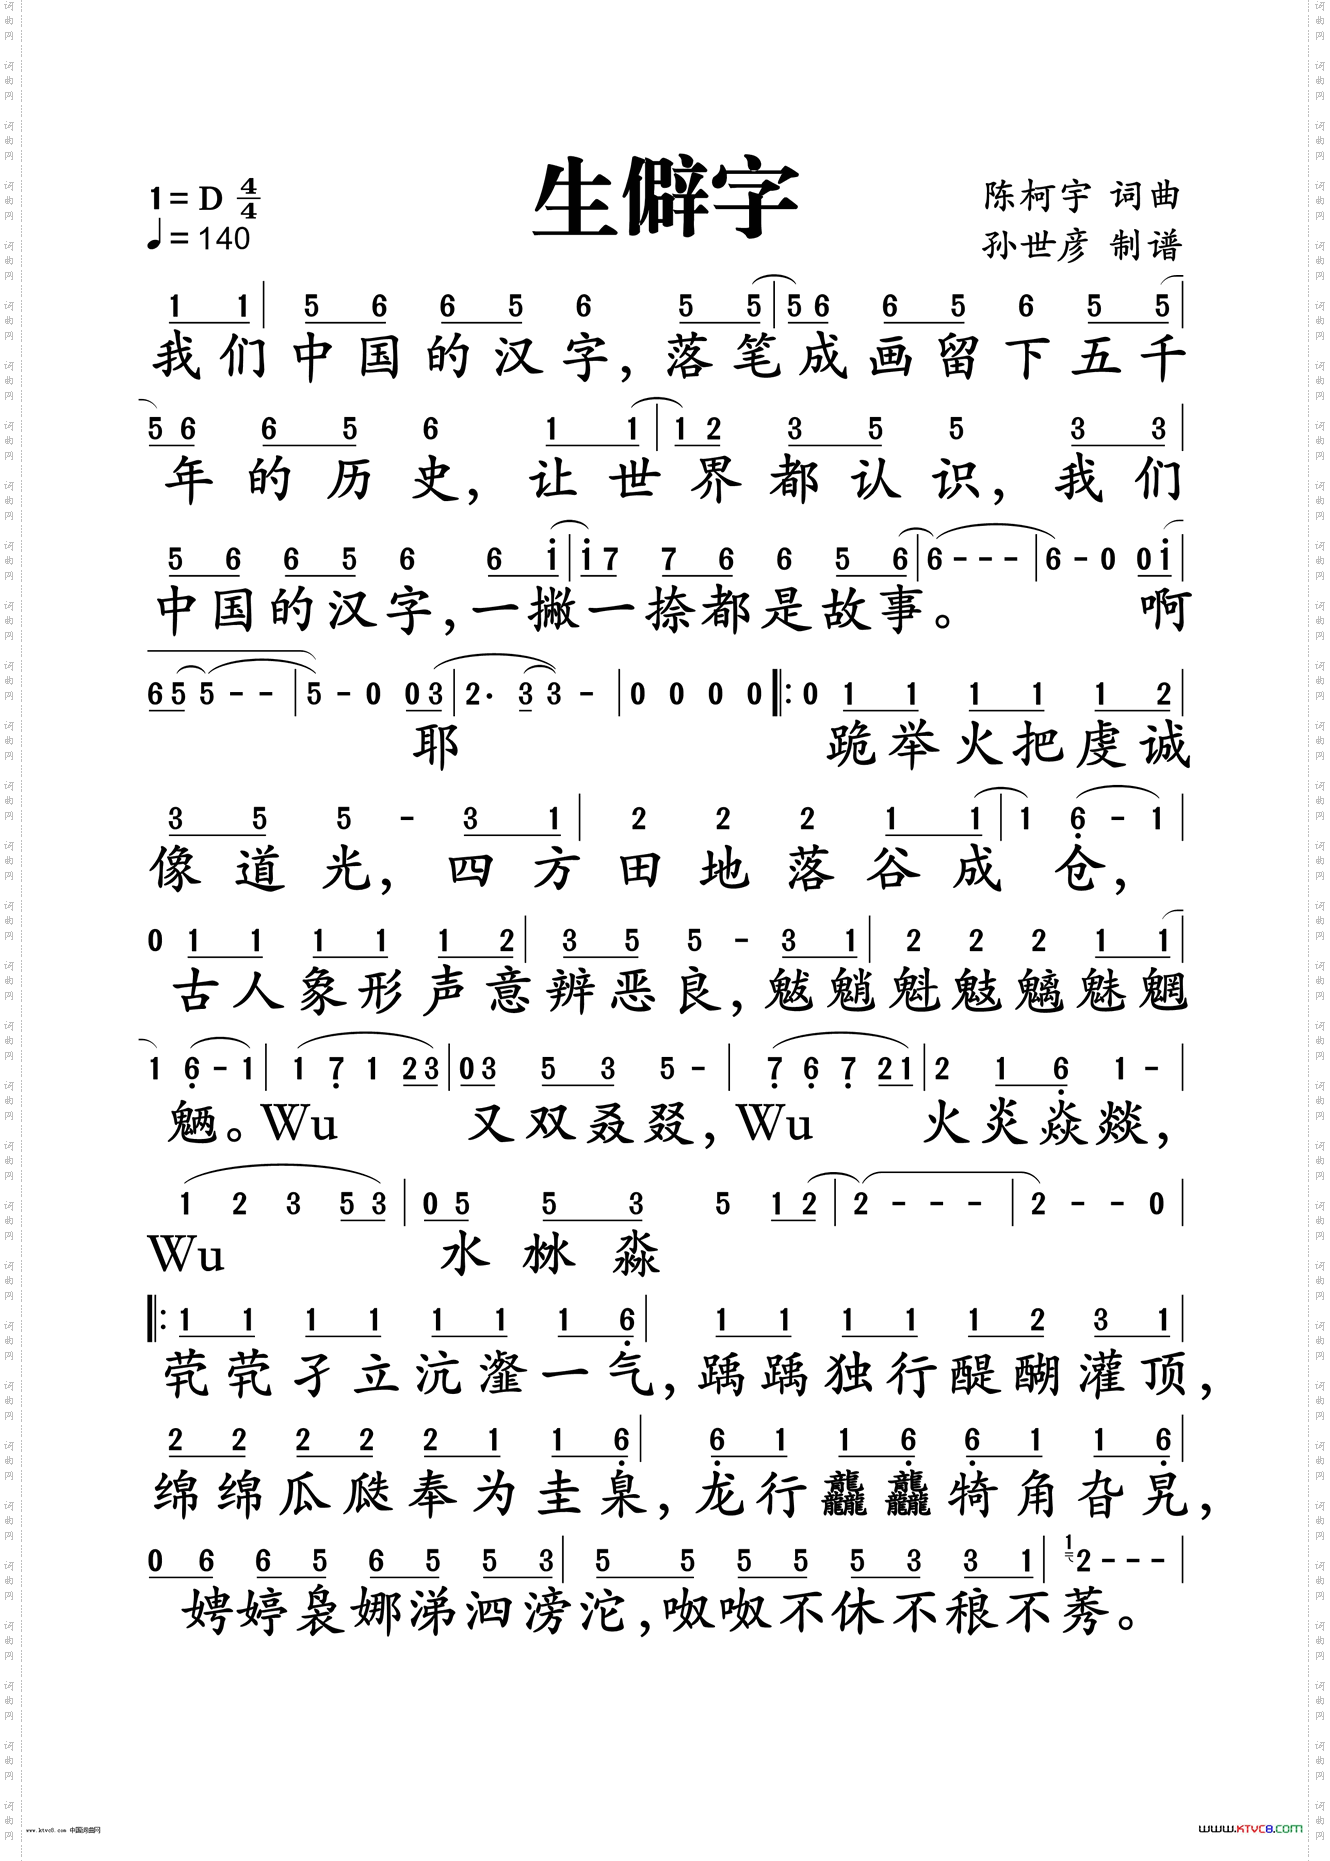 生僻字
1=D 4/4
♩=140
陈柯宇 词曲
孙世彦 制谱
1 1 | 5 6 6 5 6 5 5 | 5 6 6 5 6 5 5 |
我们中国的汉字,落笔成画留下五千
5 6 6 5 6 1 1 | 1 2 3 5 5 3 3 |
年的历史,让世界都认识,我们
5 6 6 5 6 6 i | i 7 7 6 6 5 6 | 6 - - - | 6 - 0 0 i |
中国的汉字,一撇一捺都是故事。 啊
6 5 5 - - | 5 - 0 0 3 | 2· 3 3 - | 0 0 0 0 ‖: 0 1 1 1 1 1 2 |
耶 跪举火把虔诚
3 5 5 - 3 1 | 2 2 2 1 1 | 1 6 - 1 |
像道光,四方田地落谷成仓,
0 1 1 1 1 1 2 | 3 5 5 - 3 1 | 2 2 2 1 1 |
古人象形声意辨恶良,魃魈魁鬾魑魅魍
1 6 - 1 | 1 7 1 2 3 | 0 3 5 3 5 - | 7 6 7 2 1 | 2 1 6 1 - |
魉。Wu 又双叒叕,Wu 火炎焱燚,
1 2 3 5 3 | 0 5 5 3 5 1 2 | 2 - - - | 2 - - 0 |
Wu 水沝淼
‖: 1 1 1 1 1 1 1 6 | 1 1 1 1 1 2 3 1 |
茕茕孑立沆瀣一气,踽踽独行醍醐灌顶,
2 2 2 2 2 1 1 6 | 6 1 1 6 6 1 1 6 |
绵绵瓜瓞奉为圭臬,龙行龘龘犄角旮旯,
0 6 6 5 6 5 5 3 | 5 5 5 5 5 3 3 1 | 1 2 - - - |
娉婷袅娜涕泗滂沱,呶呶不休不稂不莠。
www.ktvc8.com 中国词曲网
www.KTVC8.com